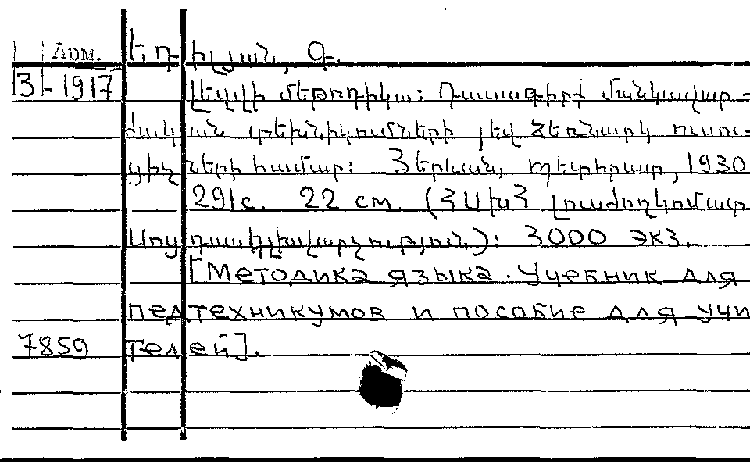 Арм. Եդիլյան, Գ.
3-1917 Լեզվի մեթոդիկա: Դասագիրք մանկավար-
ժական տեխնիկումների յեվ ձեռնարկ ուսու-
ցիչների համար: Յերևան, Պետհրատ, 1930
291с. 22 см. (ՀՍԽՀ լուսժողկոմատ
): 3000 экз.
[Методика языка. Учебник для
педтехникумов и пособие для учи
7859 телей].